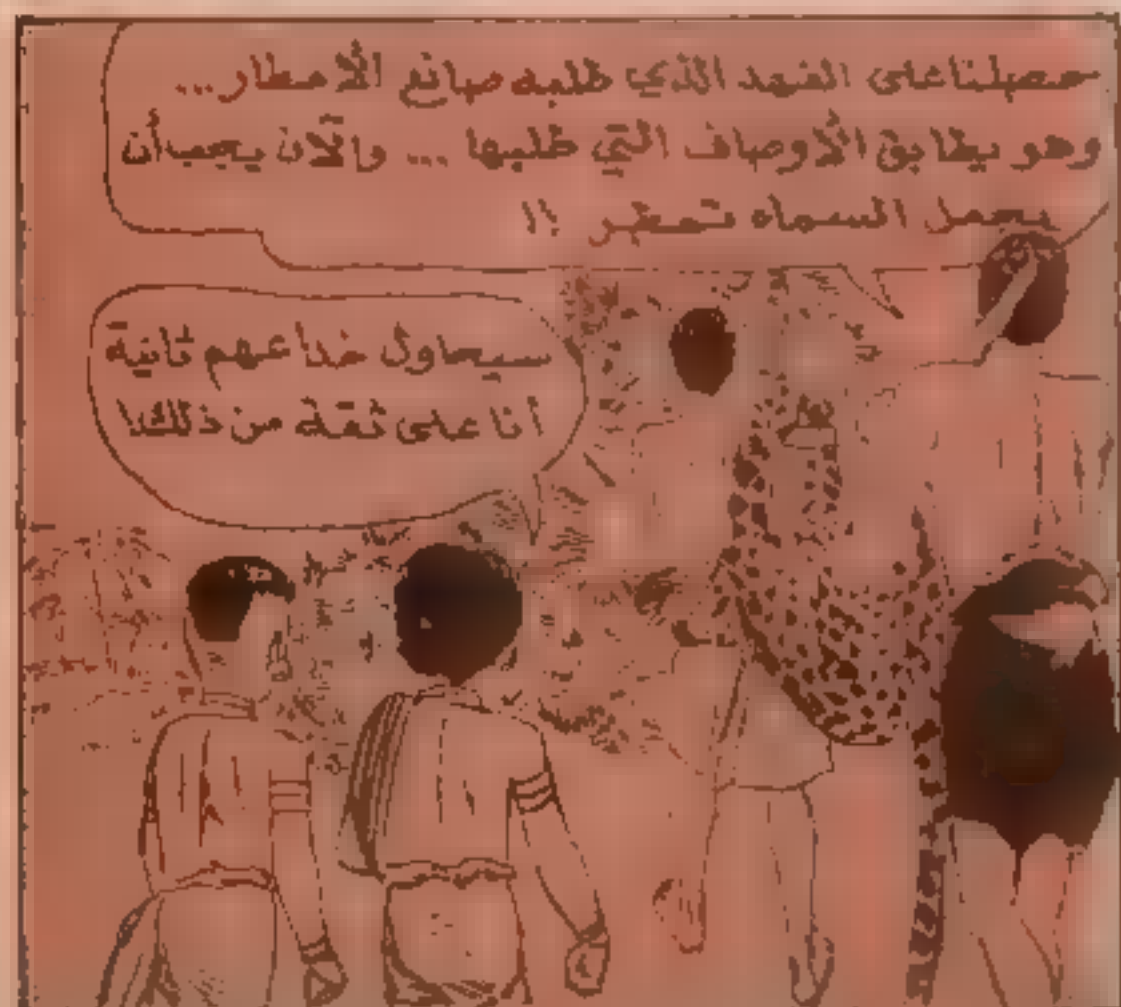 حصلنا على الفهد الذي طلبه صانع الأمطار...
وهو يطابق الأوصاف التي طلبها ... والآن يجب أن
يجعل السماء تمطر !!
سيحاول خداعهم ثانية
أنا على ثقة من ذلك!